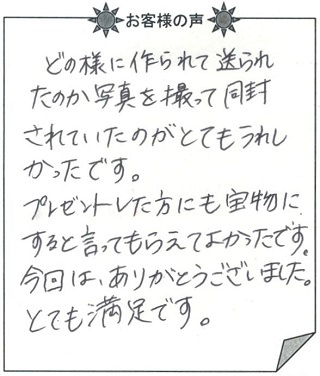 お客様の声
どの様に作られて送られ
たのか写真を撮って同封
されていたのがとてもうれし
かったです。
プレゼントした方にも宝物に
すると言ってもらえてよかったです。
今回は、ありがとうございました。
とても満足です。